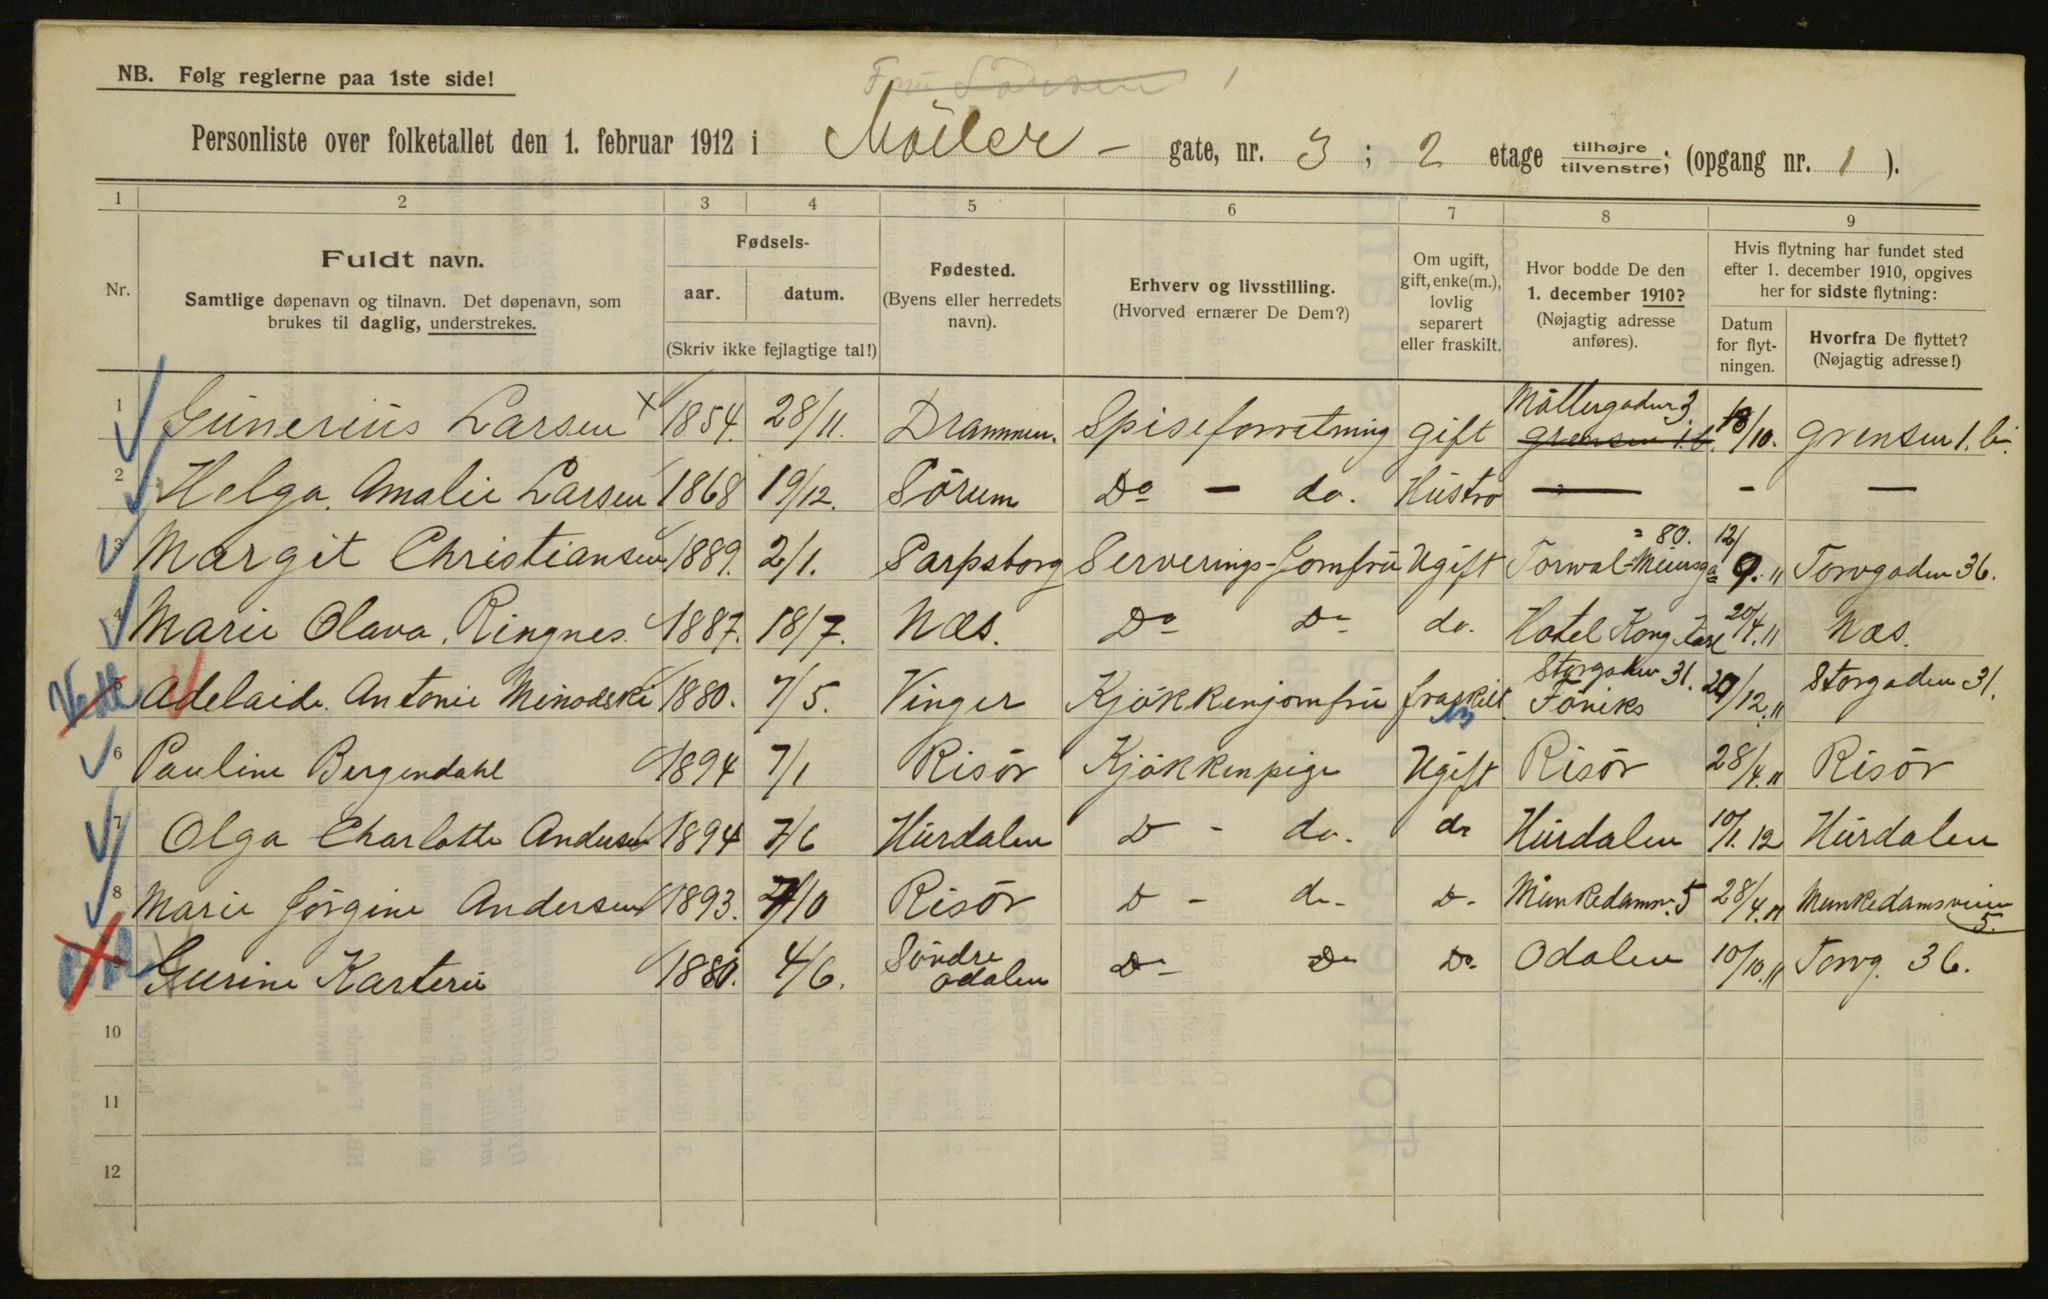 NB. Følg reglerne paa 1ste side!
Fru Larsen 1
Personliste over folketallet den 1. februar 1912 i Möller - gate, nr. 3 ; 2 etage tilhøjre tilvenstre; (opgang nr. 1 ).
1 2 3 4 5 6 7 8 9
Nr.
Fuldt navn.
Samtlige døpenavn og tilnavn. Det døpenavn, som
brukes til daglig, understrekes.
Fødsels-
aar. datum.
(Skriv ikke fejlagtige tal!)
Fødested.
(Byens eller herredets
navn).
Erhverv og livsstilling.
(Hvorved ernærer De Dem?)
Om ugift,
gift, enke(m.),
lovlig
separert
eller fraskilt.
Hvor bodde De den
1. december 1910?
(Nøjagtig adresse
anføres).
Hvis flytning har fundet sted
efter 1. december 1910, opgives
her for sidste flytning:
Datum
for flyt-
ningen.
Hvorfra De flyttet?
(Nøjagtig adresse!)
1 Gunerius Larsen x 1854. 28/11. Drammen. Spiseforretning gift Möllergaden 3 Grensen 1.b. /10. Grensen 1. b.
2 Helga. Amalie Larsen 1868 19/12. Sörum Do - do. Hustro — - —
3 Margit Christiansen 1889. 2/1. Sarpsborg Serverings-Jomfru Ugift Torval-Meiersga 80. 12/9. 11 Torvgaden 36.
4 Marie Olava. Ringnes. 1887. 18/7. Næs. Do Do do. Hotel Kong Karl 20/4. 11 Næs.
Adelaide. Antonie Minodski 1880. 7/5. Vinger Kjökkenjomfru fraskilt Storgaden 31. Föniks 29/12. 11 Storgaden 31.
6 Pauline Bergendahl 1894 7/1 Risör Kjökkenpige Ugift Risör 28/4. 11 Risör
7 Olga Charlotte Andersen 1894 7/6 Hurdalen D - do. do Hurdalen 10/1. 12 Hurdalen
8 Marie Jörgine Andersen 1893. /10 Risör D - do - D - Munkedamsv. 5 28/4. 11 Munkedamsveien 5.
Gurine Karterü 1880. 4/6. Söndre Odalen Do Do Do Odalen 10/10. 11 Torvg. 36.
10
11
12